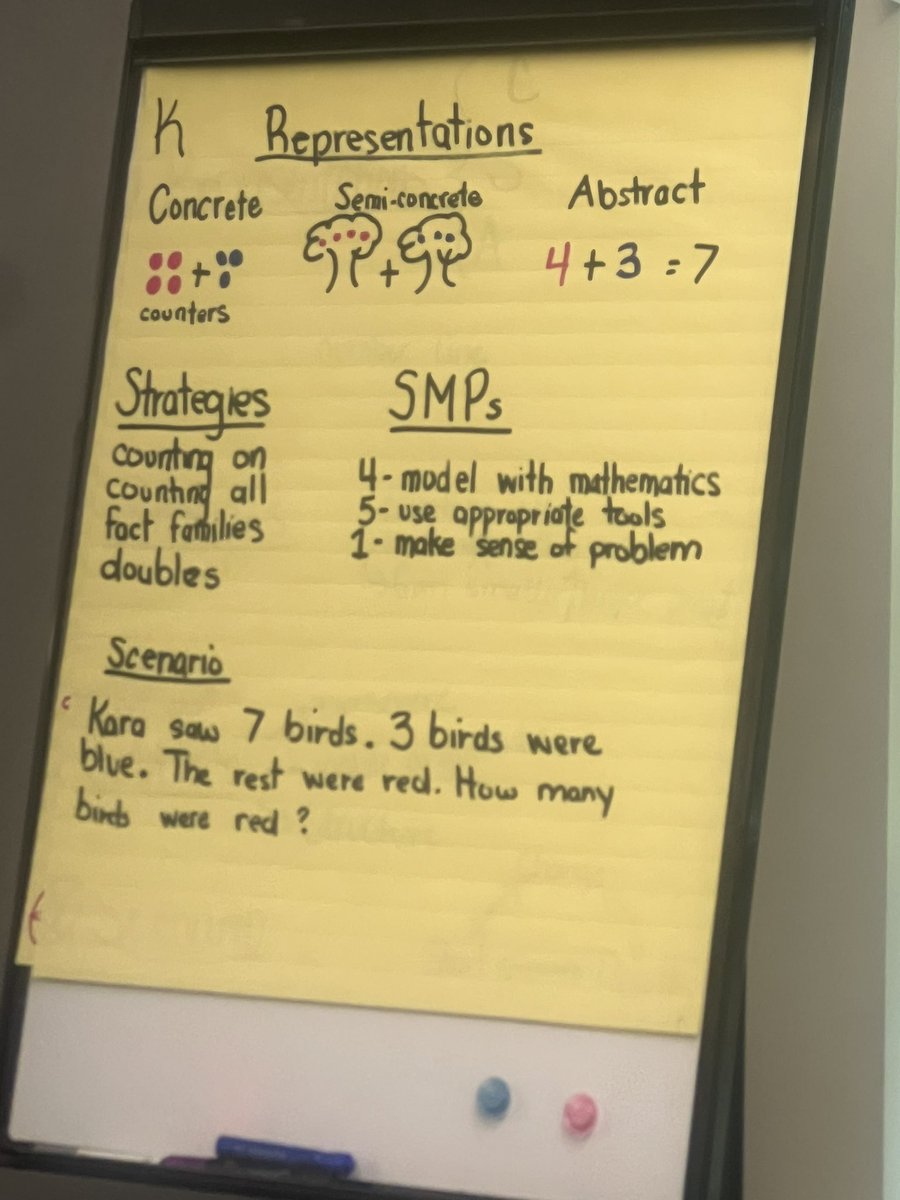 K Representations
Concrete Semi-concrete Abstract
+ + 4 + 3 = 7
counters
Strategies SMPs
counting on
counting all
fact families
doubles
4- model with mathematics
5- use appropriate tools
1- make sense of problem
Scenario
Kara saw 7 birds. 3 birds were
blue. The rest were red. How many
birds were red?